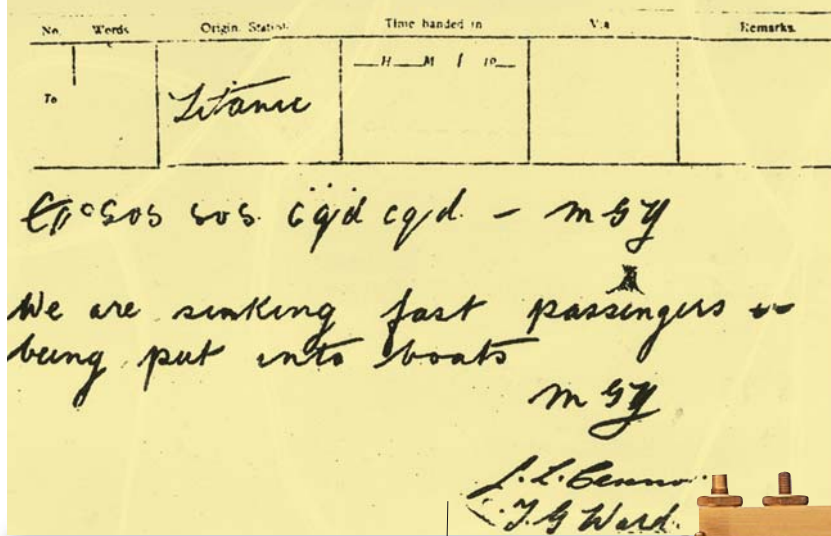 No. Words Origin. Station. Time handed in Via Remarks.
H M 19
To Titanic
SOS SOS. cqd cqd. - MGY
We are sinking fast passengers
being put into boats
MGY
T G Ward.